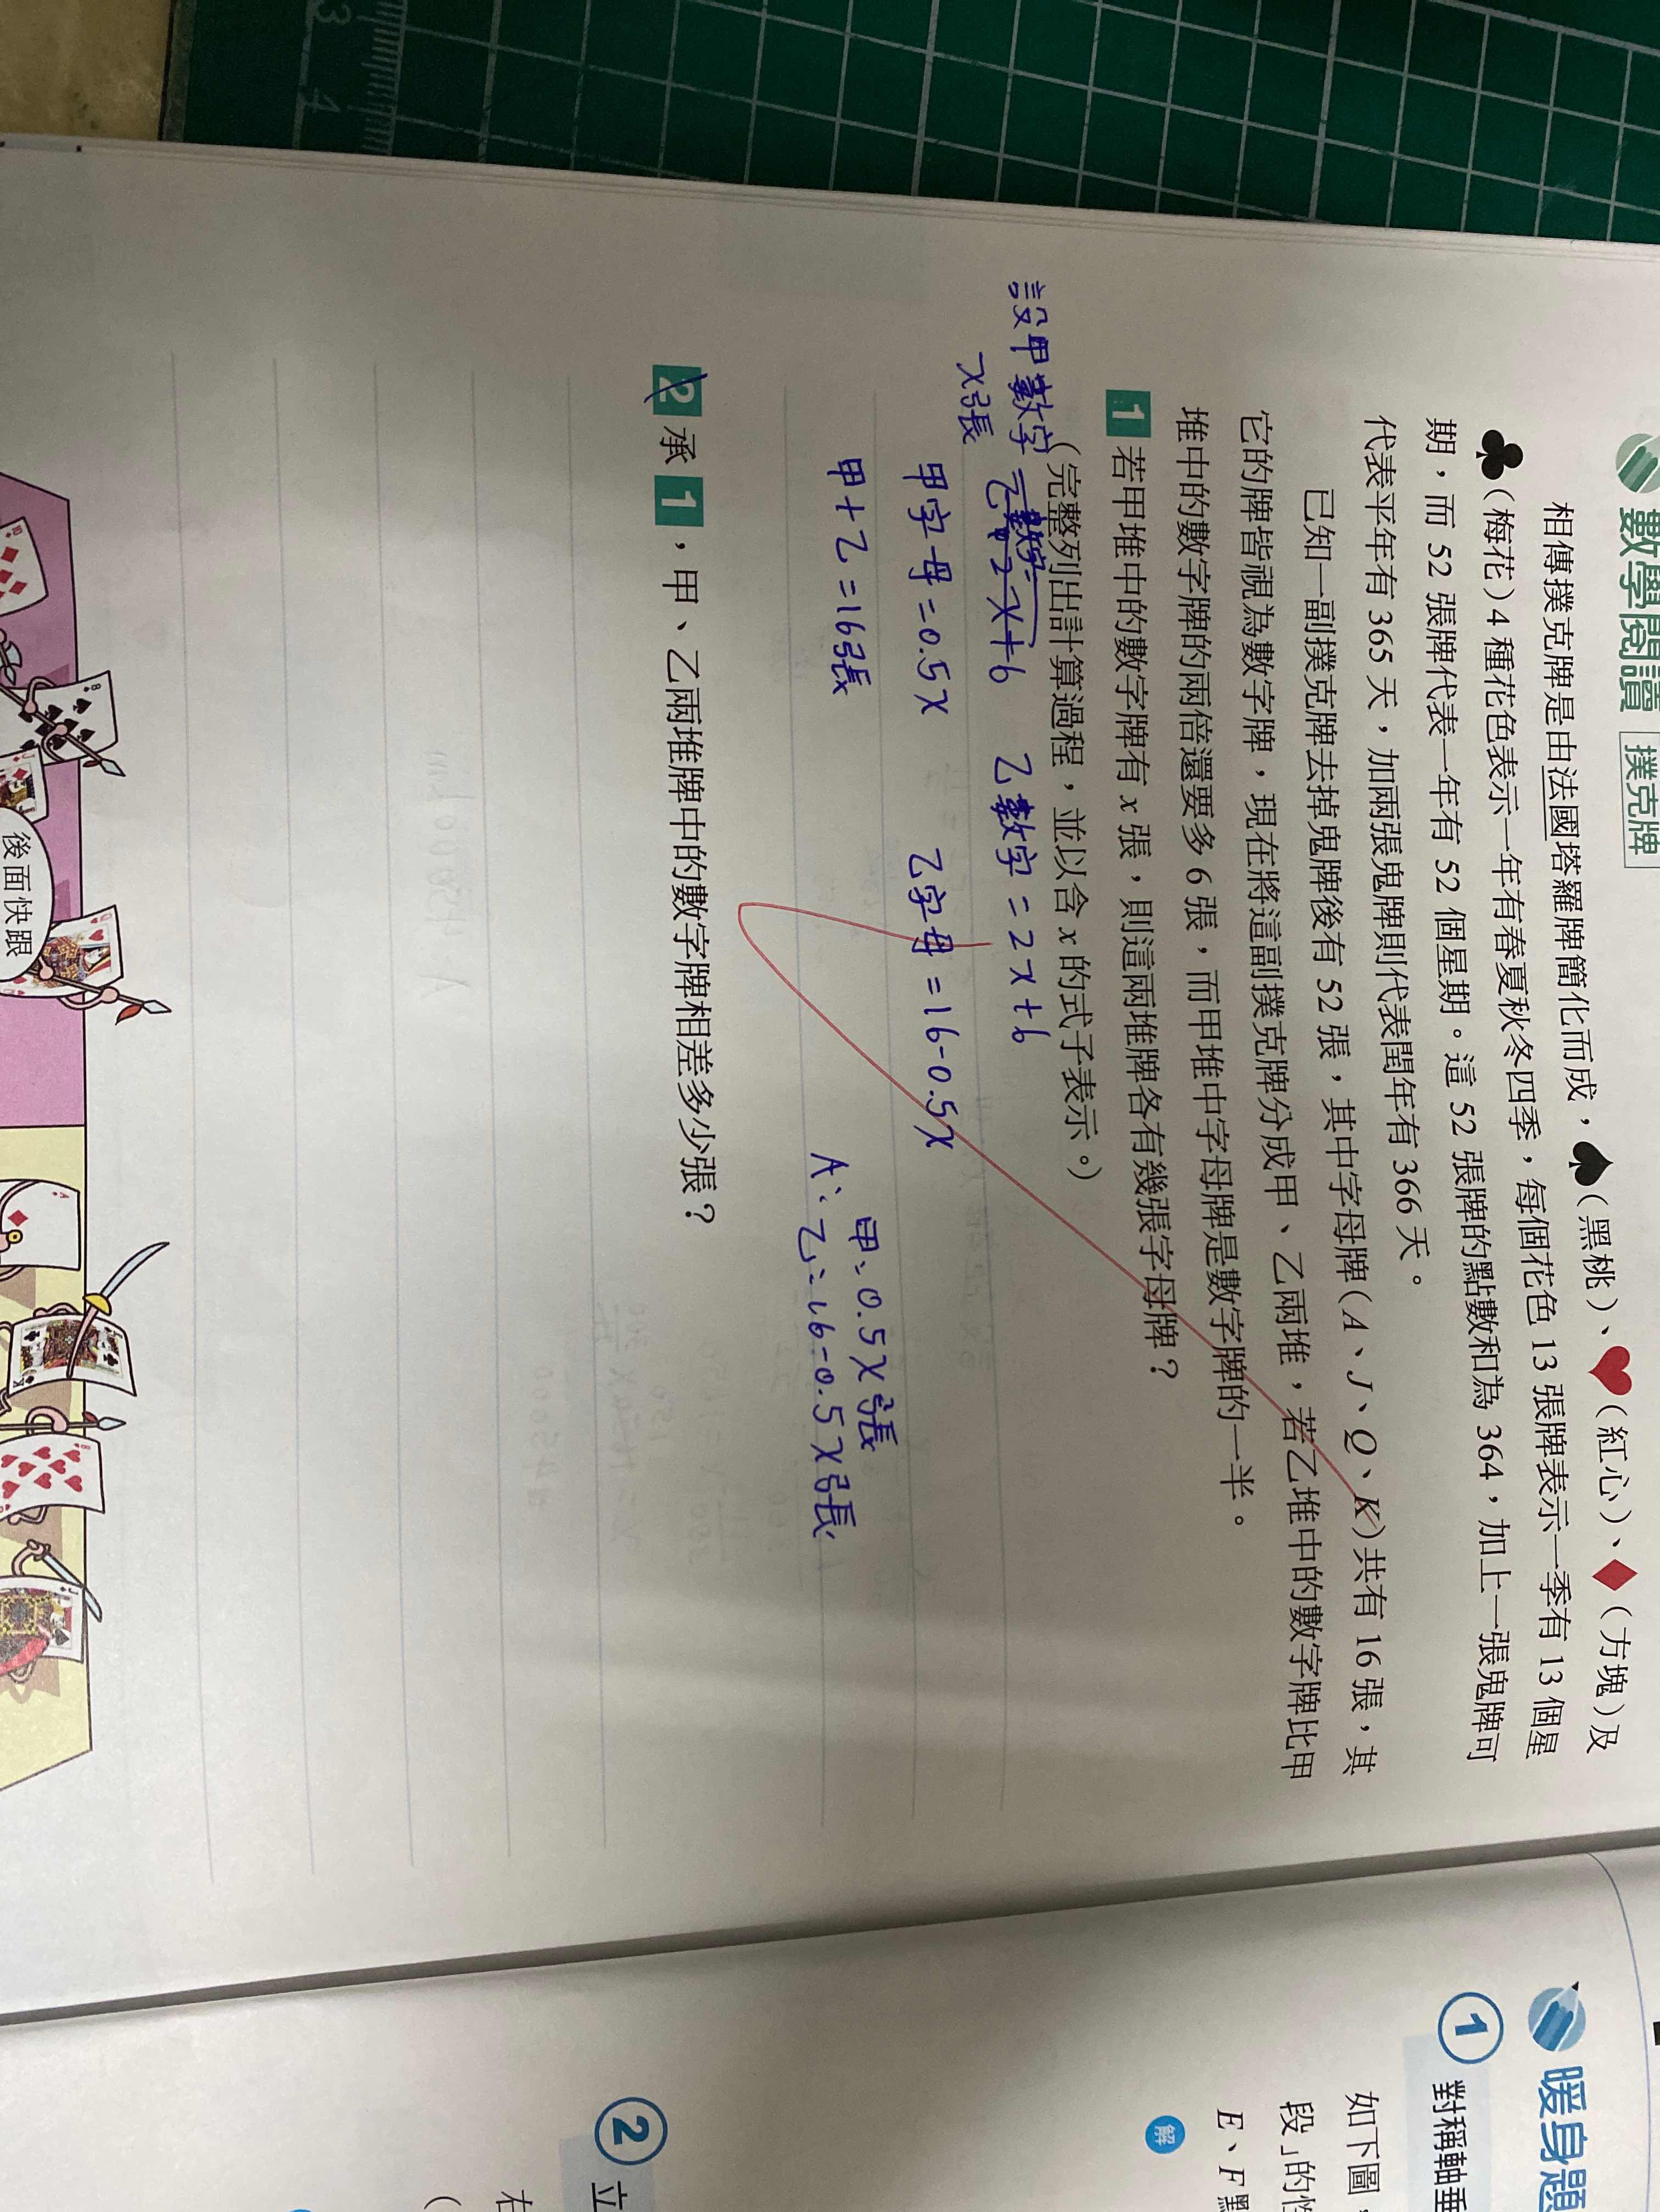 數學閱讀 撲克牌
相傳撲克牌是由法國塔羅牌簡化而成，♠（黑桃）、♥（紅心）、♦（方塊）及
♣（梅花）4 種花色表示一年有春夏秋冬四季，每個花色 13 張牌表示一季有 13 個星
期，而 52 張牌代表一年有 52 個星期。這 52 張牌的點數和為 364，加上一張鬼牌可
代表平年有 365 天，加兩張鬼牌則代表閏年有 366 天。
已知一副撲克牌去掉鬼牌後有 52 張，其中字母牌（A、J、Q、K）共有 16 張，其
它的牌皆視為數字牌，現在將這副撲克牌分成甲、乙兩堆，若乙堆中的數字牌比甲
堆中的數字牌的兩倍還要多 6 張，而甲堆中字母牌是數字牌的一半。
1 若甲堆中的數字牌有 x 張，則這兩堆牌各有幾張字母牌？
（完整列出計算過程，並以含 x 的式子表示。）
設甲數字
x張
乙數字 = 2x+6
甲字母 = 0.5x 乙字母 = 16-0.5x
甲+乙=16張
甲: 0.5x張
A: 乙: 16-0.5x張
2 承 1，甲、乙兩堆牌中的數字牌相差多少張？
後面快跟
暖身題
1 對稱軸垂
如下圖，
段」的性
E、F
解
2 立
右
（